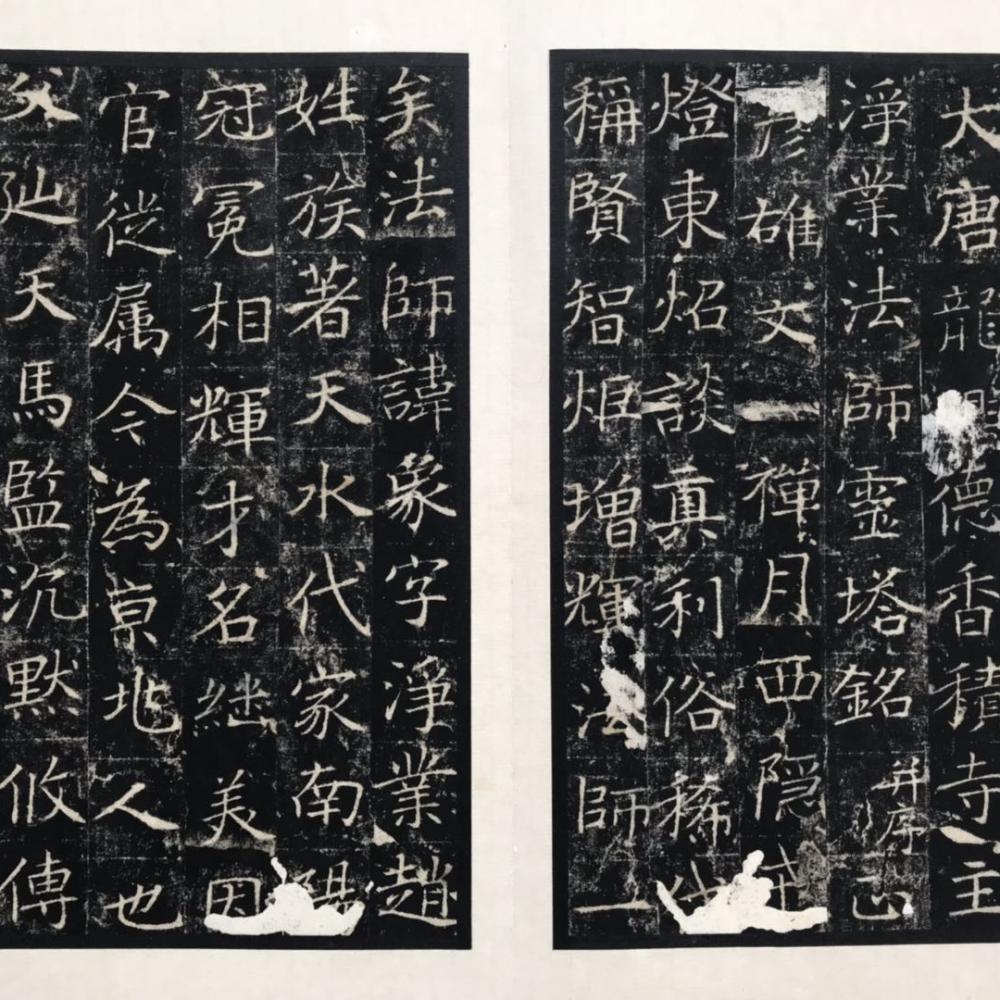 大唐龍興大德香積寺主
淨業法師靈塔銘并序
彦雄文一禪月西隱戒
燈東炤談真利俗稀代
稱賢智炬增輝法師一
矣法師諱象字淨業趙
姓族著天水代家南陽
冠冕相輝才名継美因
官從属今為京地人也
父延天馬監沉默攸傳